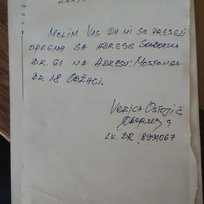 MOLIM VAS DA MI SE PRESELI
OPREMA SA ADRESE
BR. 61 NA ADRESU: MOSTONGA
BR 18 ODŽACI.
VERICA OSTOJIĆ
LK. BR. 8991067